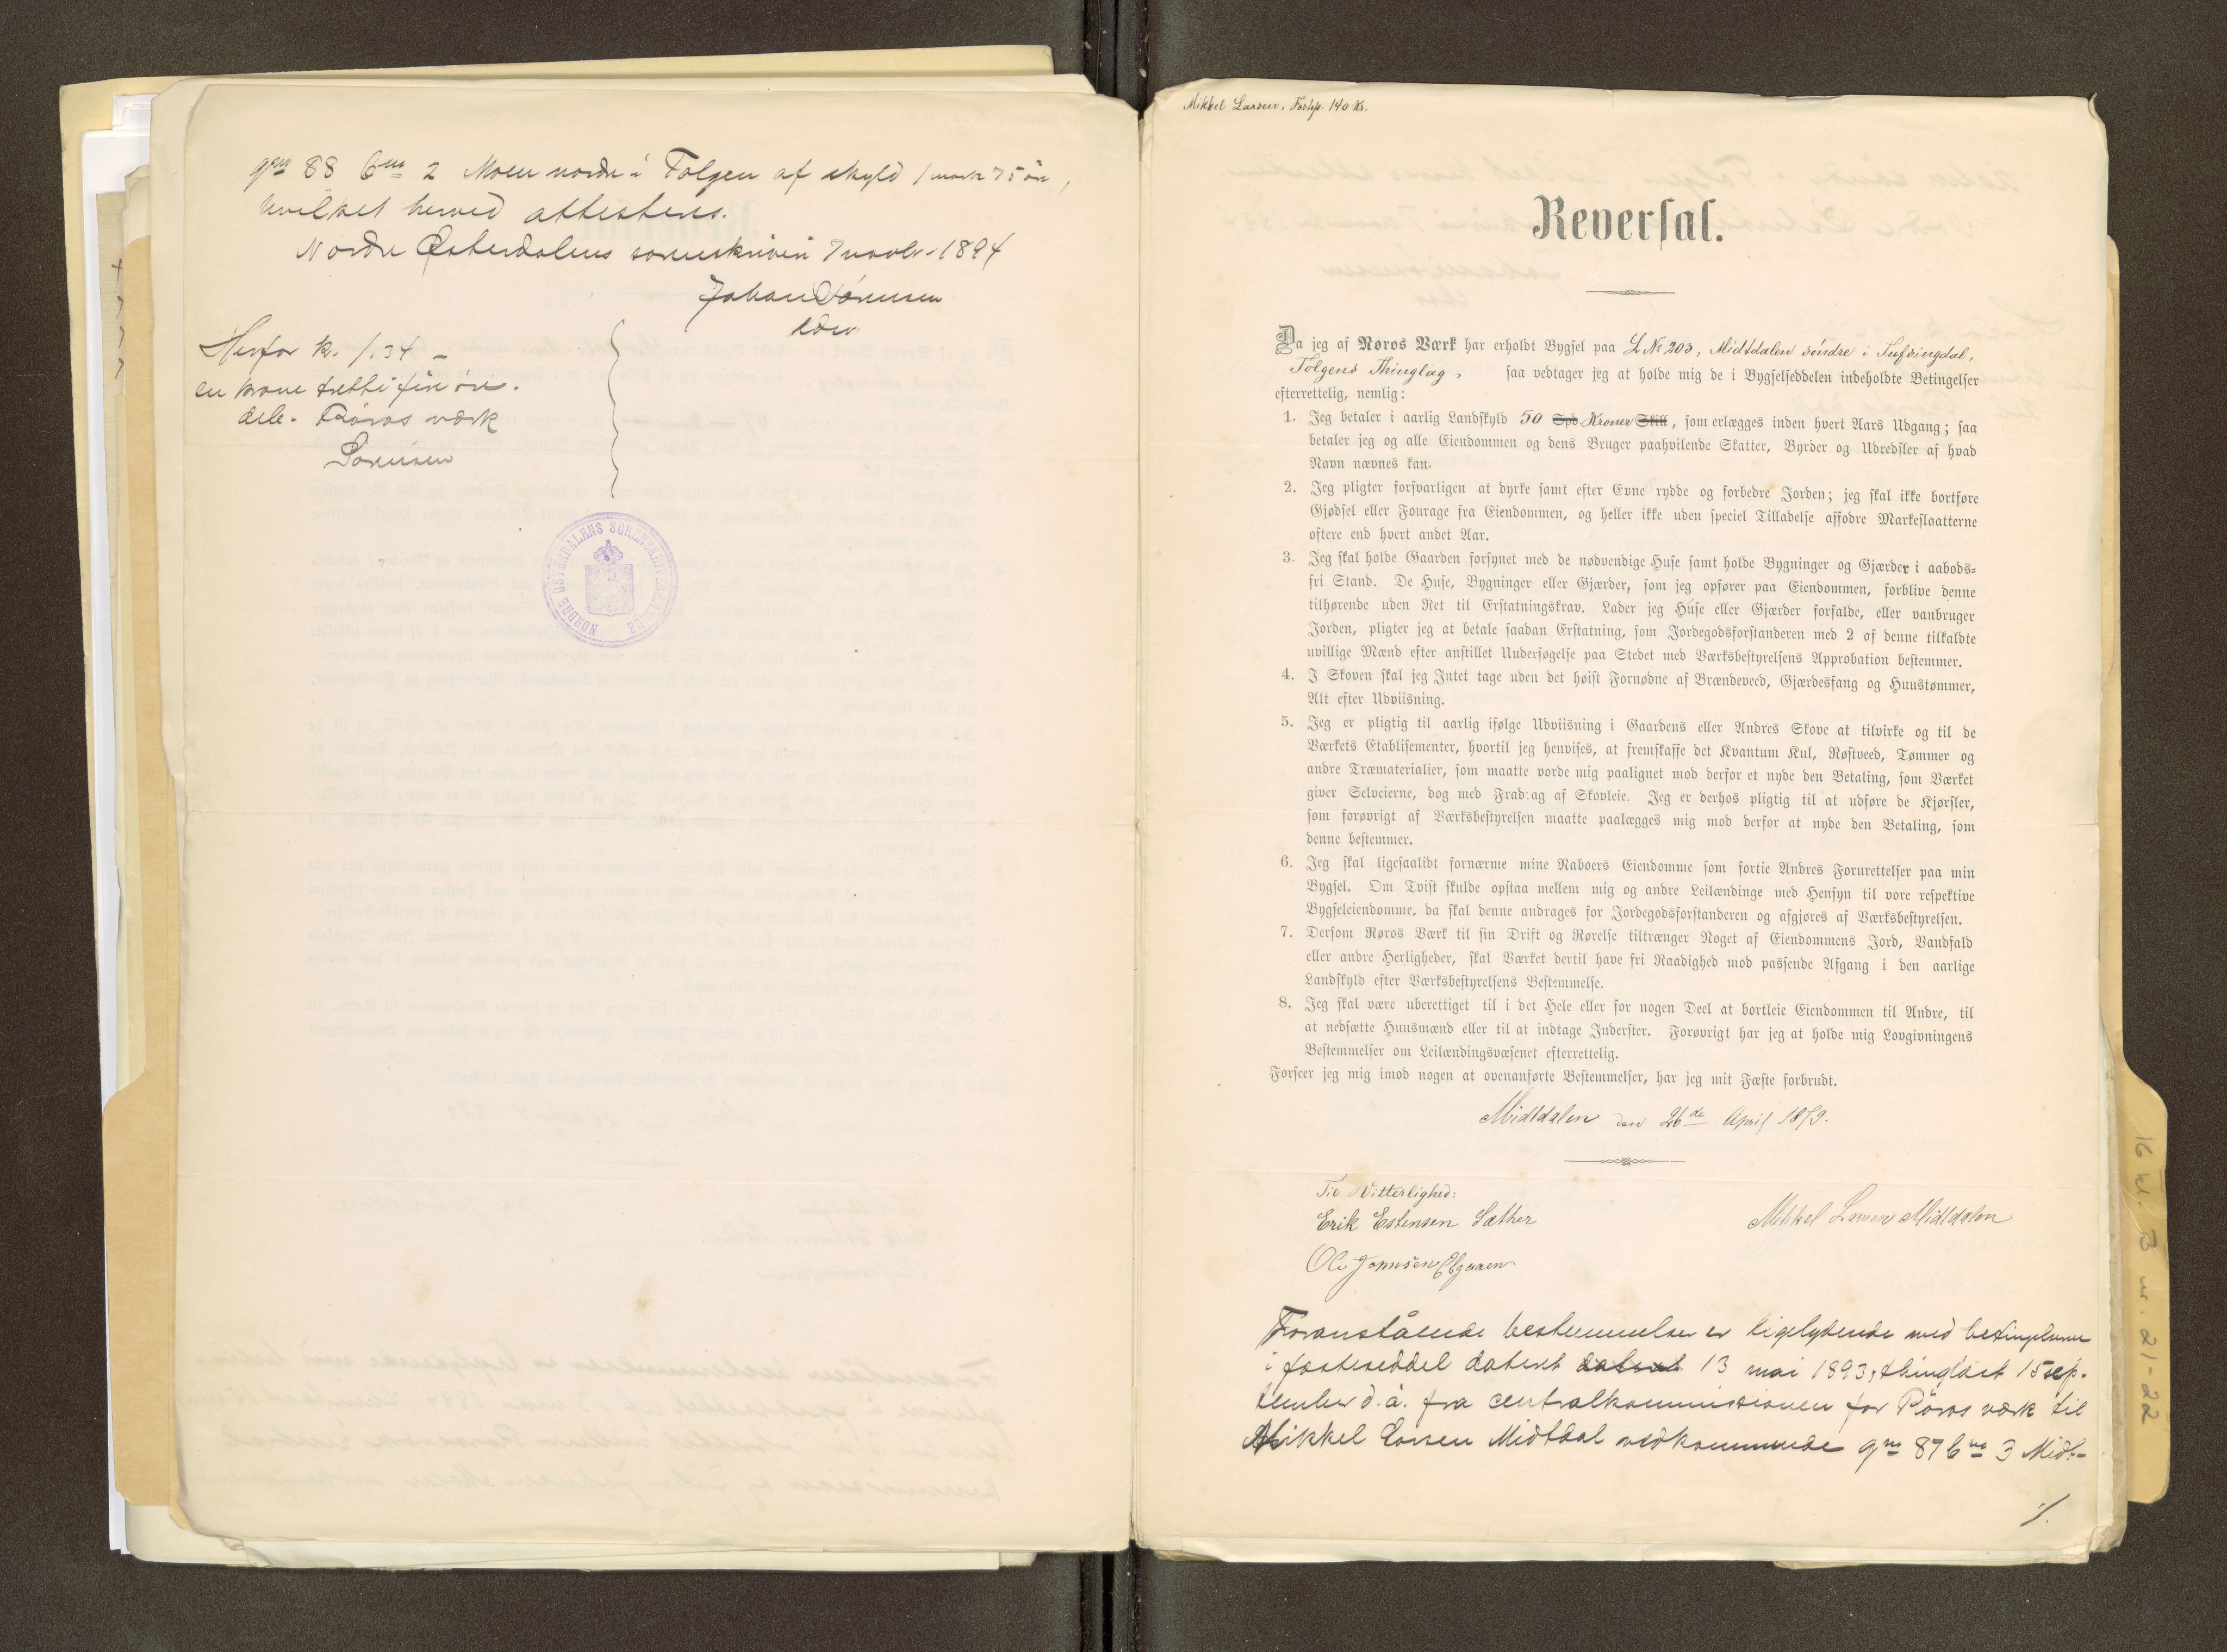 gno 88 bno 2 Moen nordre i Tolgen af skyld 1 mark 75 øre,
hvilket herved attesteres.
Nordre Østerdalens sorenskriveri 7 novbr 1894
Johan Sörensen
Herfor kr. 1.34 –
en krone tretti fire öre.
Röros værk
Sörensen
NORDRE ØSTERDALENS SORENSKRIVEREMBEDE
Mikkel Larsen, Festep. 140 Kr.
Reversal.
Da jeg af Røros Værk har erholdt Bygsel paa L. No 203, Middtdalen søndre i Tufsingdal,
Tolgens Thinglag, saa vedtager jeg at holde mig de i Bygselseddelen indeholdte Betingelser
efterrettelig, nemlig:
1. Jeg betaler i aarlig Landskyld 50 Spd Kroner Skill, som erlægges inden hvert Aars Udgang; saa
betaler jeg og alle Eiendommen og dens Bruger paahvilende Skatter, Byrder og Udredsler af hvad
Navn nævnes kan.
2. Jeg pligter forsvarligen at dyrke samt efter Evne rydde og forbedre Jorden; jeg skal ikke bortføre
Gjødsel eller Fourage fra Eiendommen, og heller ikke uden speciel Tilladelse affodre Markeslaatterne
oftere end hvert andet Aar.
3. Jeg skal holde Gaarden forsynet med de nødvendige Huse samt holde Bygninger og Gjærder i aabods=
fri Stand. De Huse, Bygninger eller Gjærder, som jeg opfører paa Eiendommen, forblive denne
tilhørende uden Ret til Erstatningskrav. Lader jeg Huse eller Gjærder forfalde, eller vanbruger
Jorden, pligter jeg at betale saadan Erstatning, som Jordegodsforstanderen med 2 af denne tilkaldte
uvillige Mænd efter anstillet Undersøgelse paa Stedet med Værksbestyrelsens Approbation bestemmer.
4. I Skoven skal jeg Intet tage uden det høist Fornødne af Brændeveed, Gjærdesfang og Huustømmer,
Alt efter Udviisning.
5. Jeg er pligtig til aarlig ifølge Udviisning i Gaardens eller Andres Skove at tilvirke og til de
Værkets Etablisementer, hvortil jeg henvises, at fremskaffe det Kvantum Kul, Røstveed, Tømmer og
andre Træmaterialier, som maatte vorde mig paalignet mod derfor et nyde den Betaling, som Værket
giver Selveierne, dog med Fradrag af Skovleie. Jeg er derhos pligtig til at udføre de Kjørsler,
som forøvrigt af Værksbestyrelsen maatte paalægges mig mod derfor at nyde den Betaling, som
denne bestemmer.
6. Jeg skal ligesaalidt fornærme mine Naboers Eiendomme som fortie Andres Forurettelser paa min
Bygsel. Om Tvist skulde opstaa mellem mig og andre Leilændinge med Hensyn til vore respektive
Bygseleiendomme, da skal denne andrages for Jordegodsforstanderen og afgjøres af Værksbestyrelsen.
7. Dersom Røros Værk til sin Drift og Rørelse tiltrænger Noget af Eiendommens Jord, Vandfald
eller andre Herligheder, skal Værket dertil have fri Raadighed mod passende Afgang i den aarlige
Landskyld efter Værksbestyrelsens Bestemmelse.
8. Jeg skal være uberettiget til i det Hele eller for nogen Deel at bortleie Eiendommen til Andre, til
at nedsætte Huusmænd eller til at indtage Inderster. Forøvrigt har jeg at holde mig Lovgivningens
Bestemmelser om Leilændingsvæsenet efterrettelig.
Forseer jeg mig imod nogen at ovenanførte Bestemmelser, har jeg mit Fæste forbrudt.
Middtdalen den 26de April 1893.
Til Vitterlighed:
Erik Estensen Sæther
Mikkel Larsen Middtdalen
Ole Jonnsen Elgaaen
Foranstående bestemmelser er ligelydende med betingelserne
i festeseddel dateret dateret 13 mai 1893, thinglæst 15 sep-
tember d. å. fra centralkommissionen for Röros værk til
Mikkel Larsen Midtdal vedkommende gno 87 bno 3 Midt-
./.
16 kl. B nr. 21-22